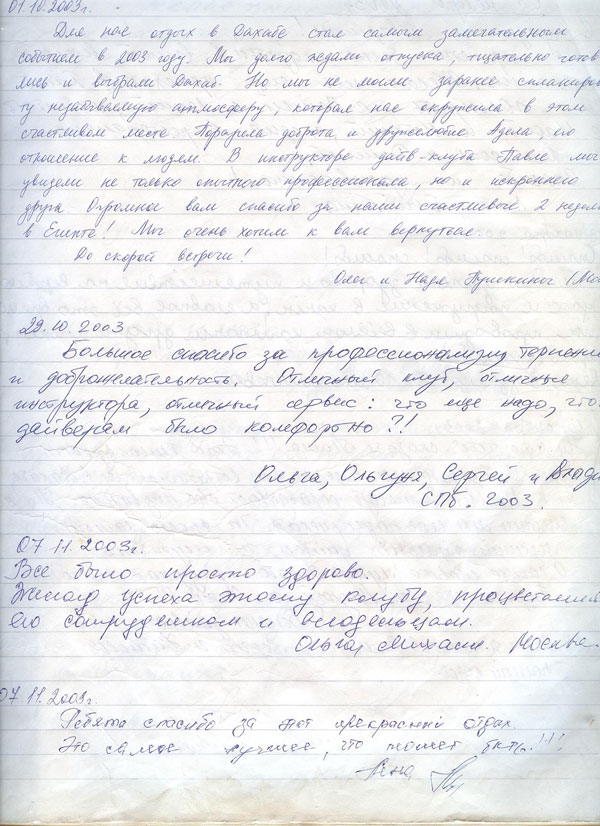 01.10.2003г.
Для нас отдых в Дахабе стал самым замечательным
событием в 2003 году. Мы долго ждали отпуска, тщательно готов
лись и выбрали Дахаб. Но мы не могли заранее спланиров
ту незабываемую атмосферу, которая нас окружила в этом
счастливом месте. Поразила доброта и дружелюбие Адела, его
отношение к людям. В инструкторе дайв-клуба Павле мы
увидели не только опытного профессионала, но и искреннего
друга. Огромное вам спасибо за наши счастливые 2 недели
в Египте! Мы очень хотим к вам вернуться.
До скорой встречи!
Олег и Надя (Мос
29.10.2003
Большое спасибо за профессионализм, терпение
и доброжелательность. Отличный клуб, отличные
инструктора, отличный сервис: что еще надо, что
дайверам было комфортно?!
Ольга, Ольгуня, Сергей и Влади
СПб. 2003.
07.11.2003г.
Все было просто здорово.
Желаю успеха этому клубу, процветания
его сотрудникам и владельцам.
Ольга, Москва.
07.11.2003г.
Ребята спасибо за этот прекрасный отдых
Это самое лучшее, что может быть!!!
Лена